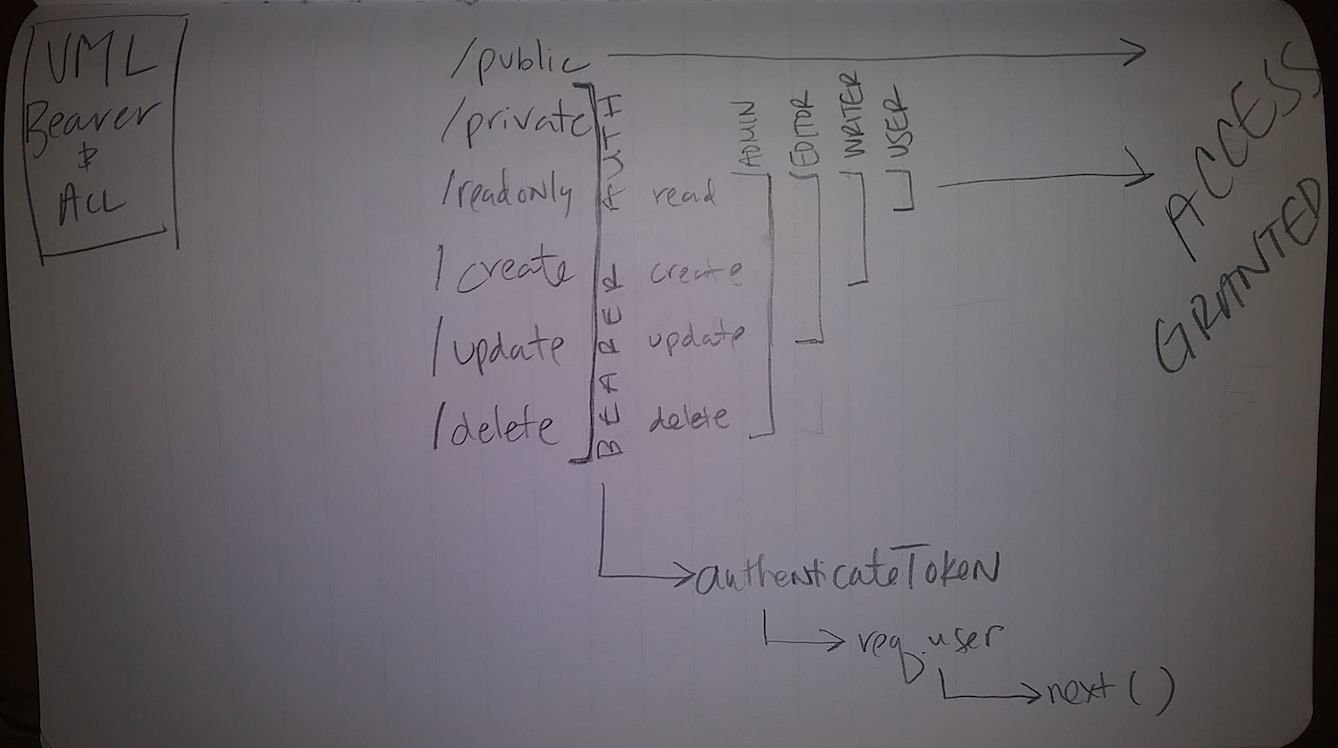 UML
Bearer
&
ACL
/public
/private
/readonly
/create
/update
/delete
BEARER AUTH
read
create
update
delete
ADMIN
EDITOR
WRITER
USER
ACCESS
GRANTED
authenticateToken
req.user
next()